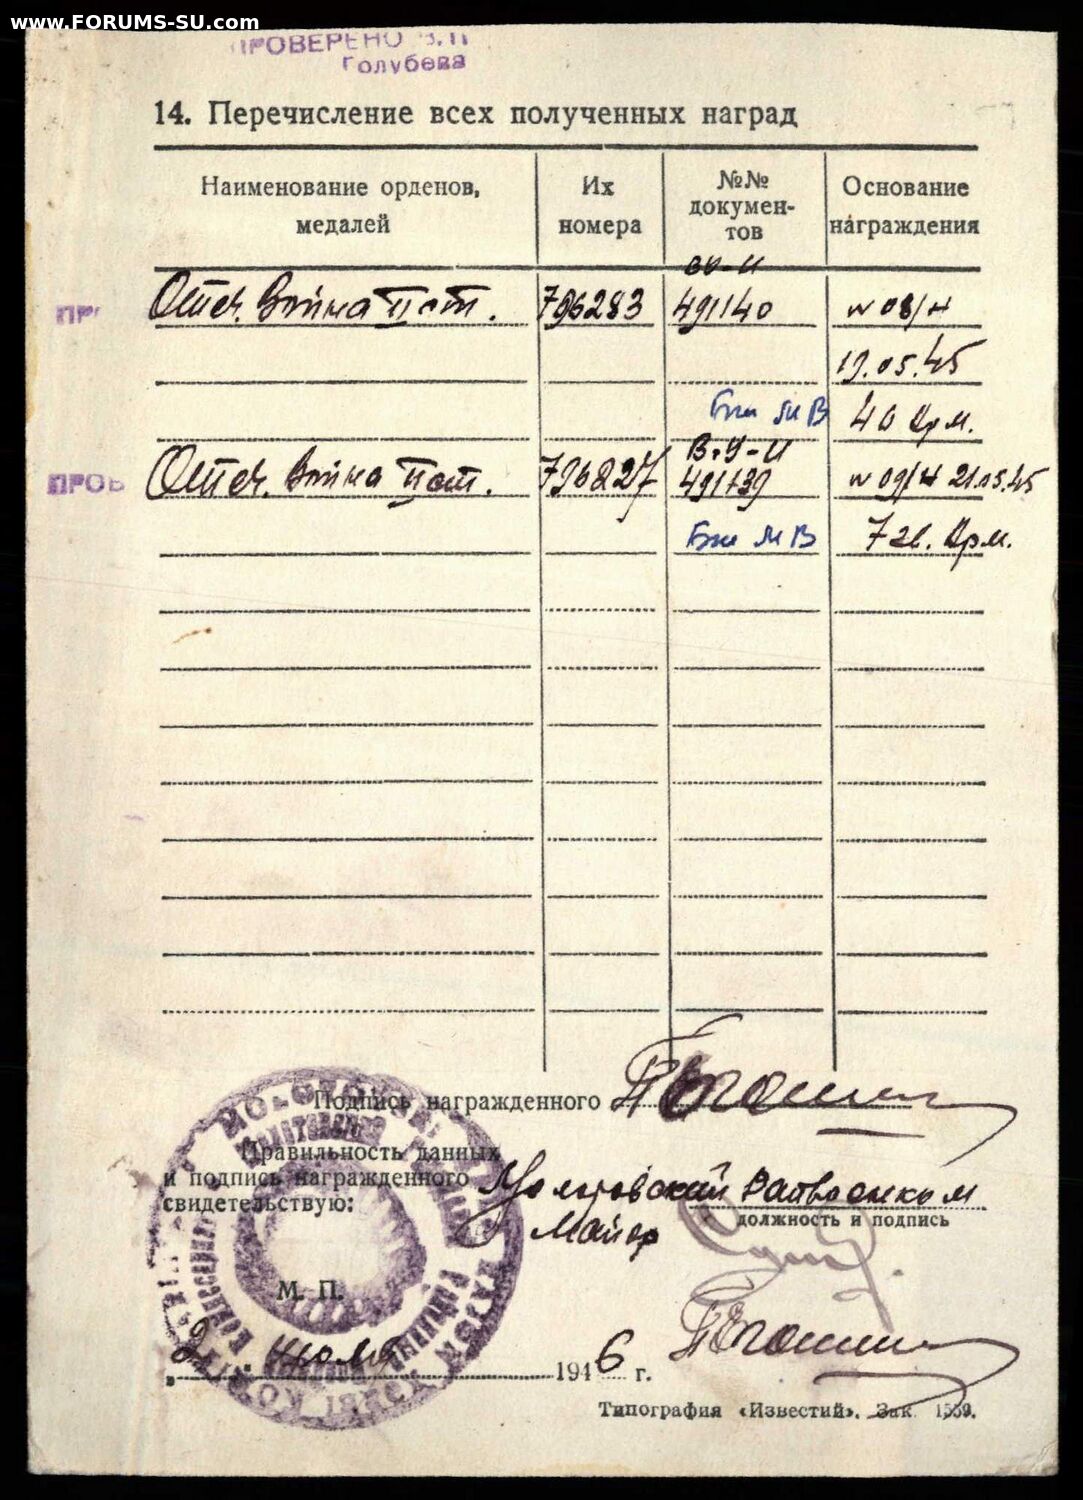 www.FORUMS-SU.com
ПРОВЕРЕНО
Голубева
14. Перечисление всех полученных наград
Наименование орденов, медалей
Их номера
№№ документов
Основание награждения
Отеч. Война II ст. 796283 491140 № 08/н
19.05.45
40 Арм.
ПРОВ Отеч. Война II ст. 796827 491139 № 09/н 21.05.45
7 гв. Арм.
Подпись награжденного
Правильность данных
и подпись награжденного
свидетельствую:
Райвоенком
Майор
должность и подпись
М. П.
2 июля 1946 г.
Типография «Известий». Зак. 1559.